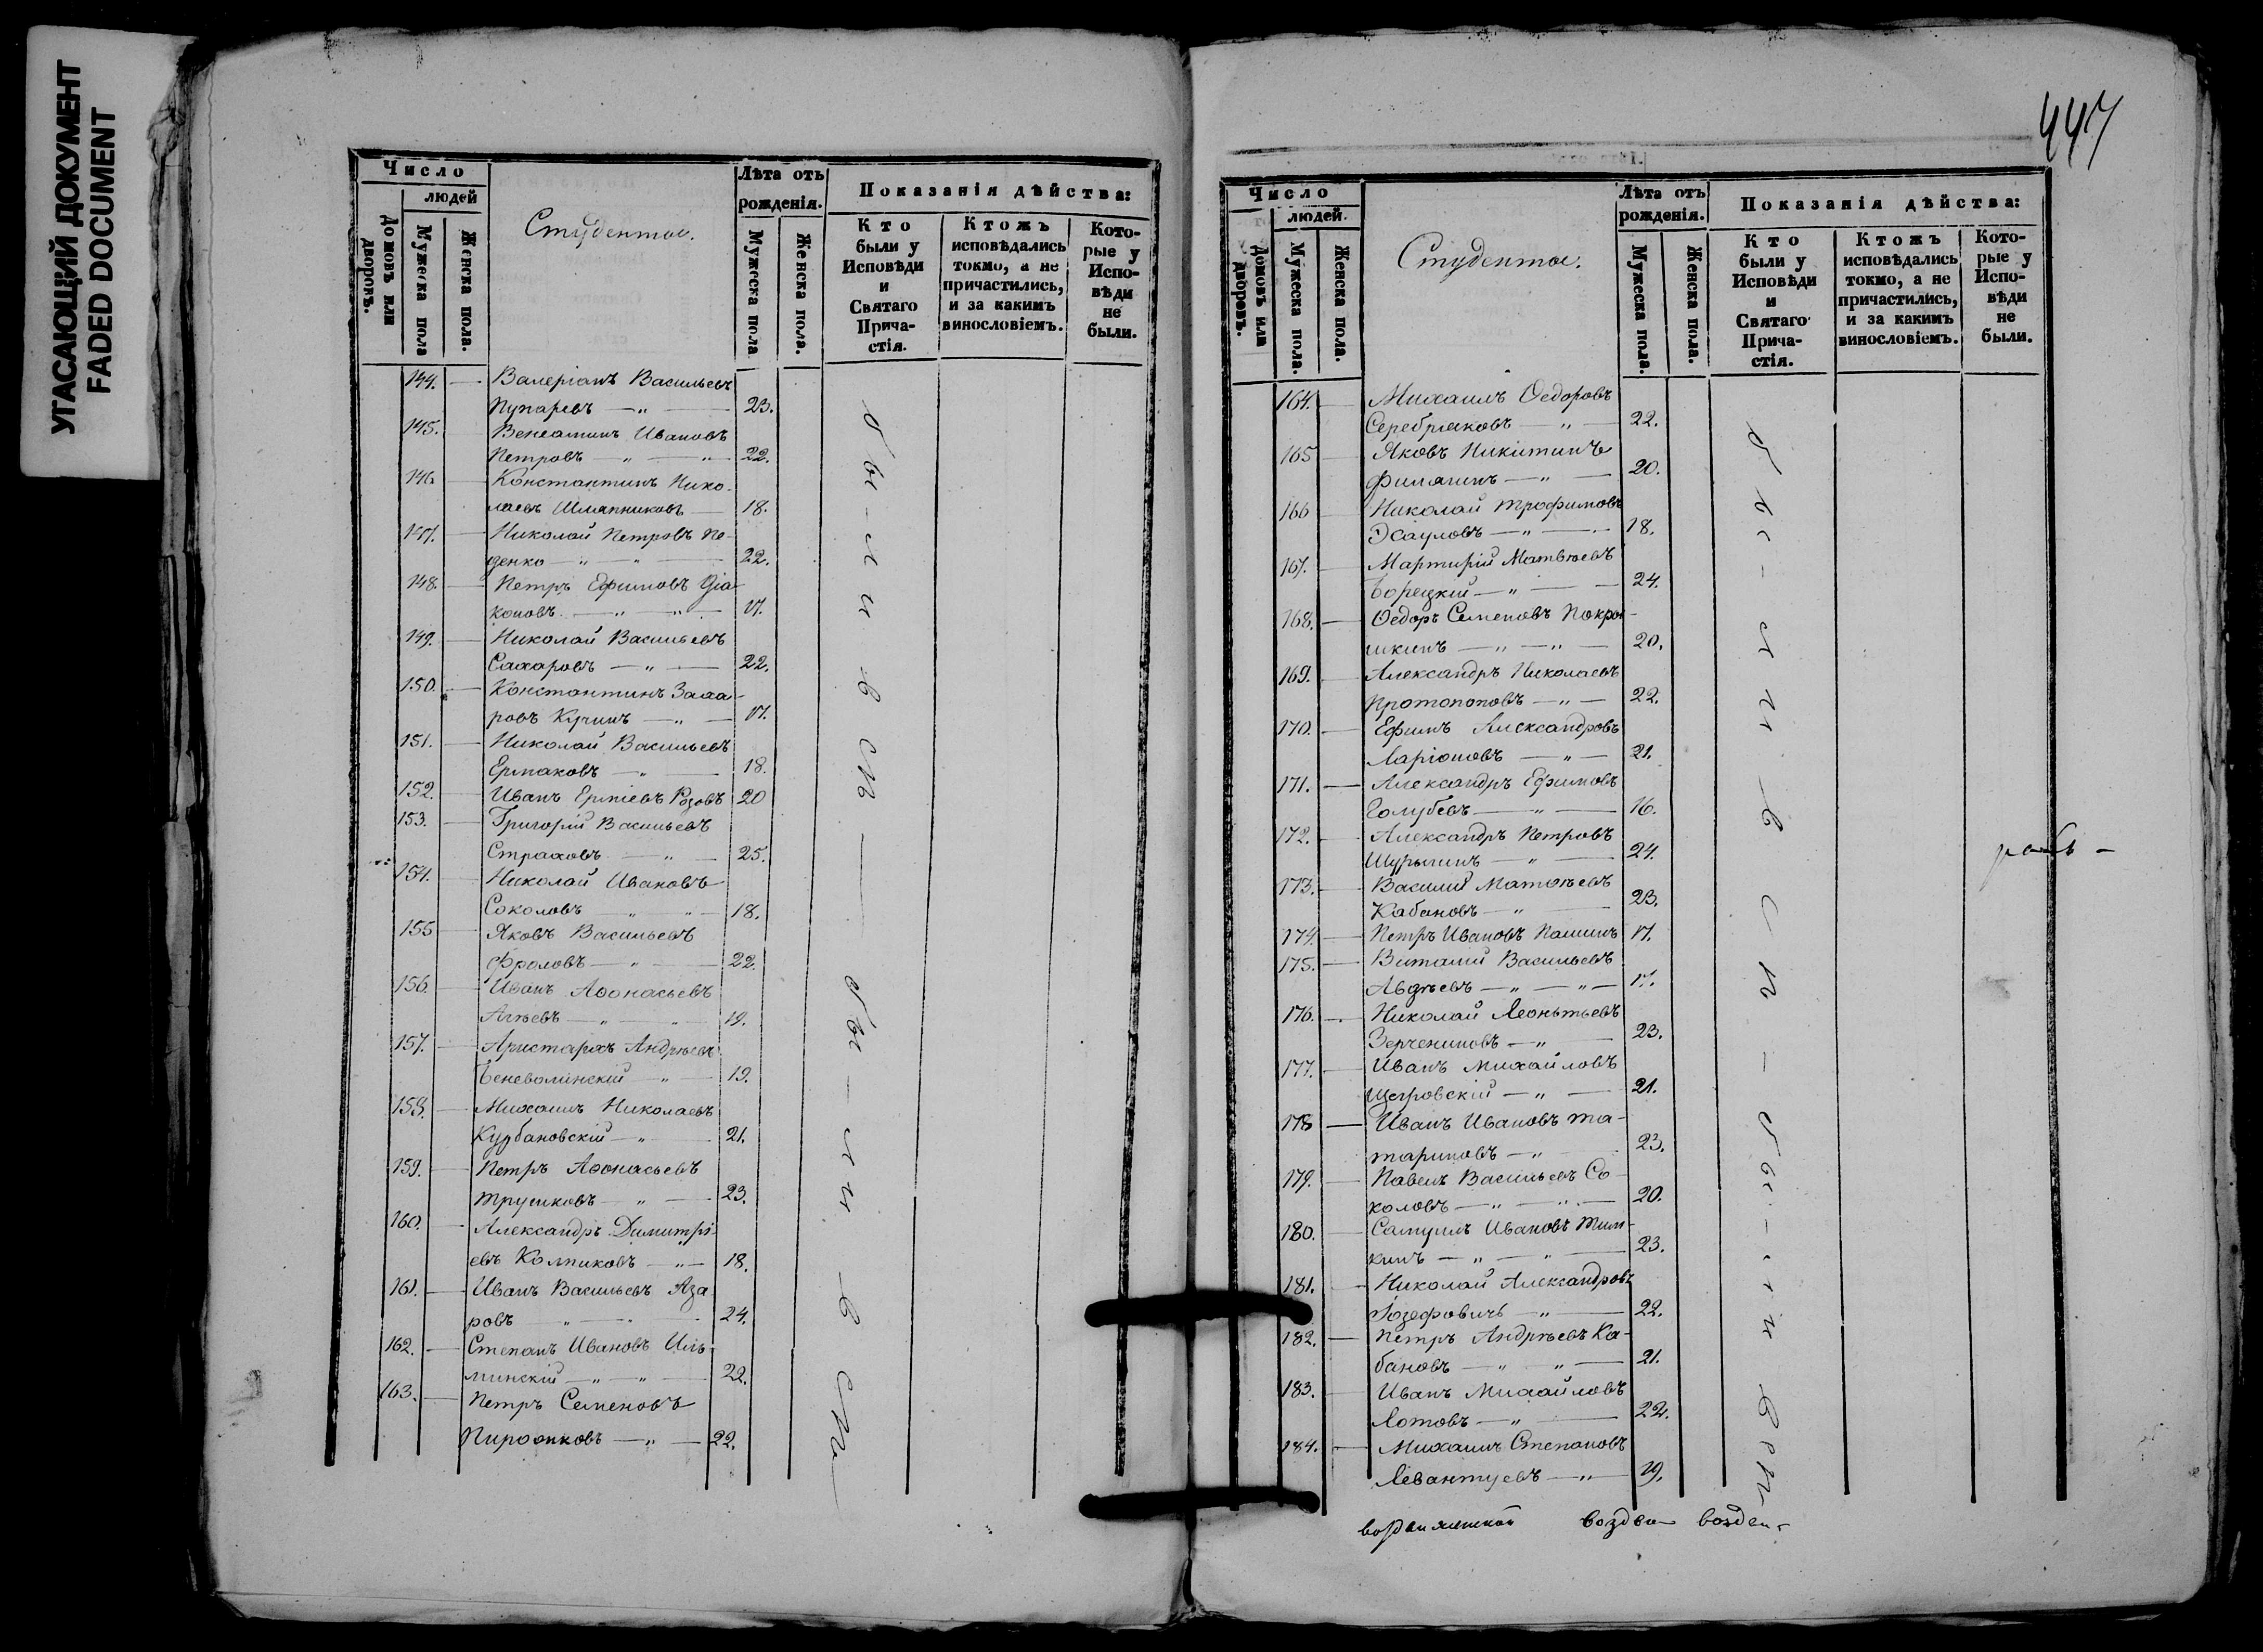 УГАСАЮЩИЙ ДОКУМЕНТ
FADED DOCUMENT
Число
людей
Домовъ или дворовъ.
Мужеска пола
Женска пола.
Студенты.
Лѣта отъ
рожденія.
Мужеска пола
Женска пола.
Показанія дѣйства:
Кто
были у
Исповѣди
и
Святаго
Прича-
стія.
Ктожъ
исповѣдались
токмо, а не
причастились,
и за какимъ
винословіемъ.
Кото-
рые у
Испо-
вѣди
не
были.
144. — Валеріанъ Васильевъ
Пупаревъ — „ — 23.
145. Венеаминъ Ивановъ
Петровъ — „ — „ — 22.
146 — Константинъ Нико-
лаевъ Шляпниковъ — 18.
147. — Николай Петровъ Пе-
денко — „ — „ — 22.
148. — Петръ Ефимовъ Діа-
коновъ — „ — „ — 17.
149. — Николай Васильевъ
Сахаровъ — „ — 22.
150. — Константинъ Заха-
ровъ Кучинъ — „ — 17.
151. — Николай Васильевъ
Ермаковъ — „ — 18.
152. — Иванъ Ерміевъ Розовъ 20
153. — Григорій Васильевъ
Страховъ — „ — 25.
154. — Николай Ивановъ
Соколовъ „ „ — 18.
155 — Яковъ Васильевъ
Фроловъ — „ — 22.
156. — Иванъ Аѳонасьевъ
Агѣевъ — „ — „ — 19.
157. — Аристархъ Андрѣевъ
Беневолинскій — „ — 19.
158. — Михаилъ Николаевъ
Курбановскій — „ — 21.
159. — Петръ Аѳонасьевъ
Трушковъ — „ — 23.
160. — Александръ Димитрі-
евъ Колпиковъ — „ — 18.
161. — Иванъ Васильевъ Аза
ровъ — „ — 24.
162. — Степанъ Ивановъ Иль-
минскій — „ — „ — 22.
163. — Петръ Семеновъ
Пирожковъ — „ — 22.
бы-ли
в
сп
бы-ли
в
447
Число
людей.
Домовъ или дворовъ.
Мужеска пола.
Женска пола.
Студенты.
Лѣта отъ
рожденія.
Мужеска пола.
Женска пола.
Показанія дѣйства:
Кто
были у
Исповѣди
и
Святаго
Прича-
стія.
Ктожъ
исповѣдались
токмо, а не
причастились,
и за какимъ
винословіемъ.
Кото-
рые у
Испо-
вѣди
не
были.
164. — Михаилъ Ѳедоровъ
Серебряковъ — „ — 22.
165 — Яковъ Никитинъ
Филяинъ — „ — 20.
166 — Николай Трофимовъ
Эсауловъ — „ — 18.
167. — Мартирій Матвѣевъ
Борецкій — „ — 24.
168. — Ѳедоръ Семеновъ Покро-
шкинъ — „ — „ — 20.
169. — Александръ Николаевъ
Протопоповъ — „ — 22.
170. — Ефимъ Александровъ
Ларіоновъ — „ — 21.
171. — Александръ Ефимовъ
Голубевъ — „ — 16.
172. — Александръ Петровъ
Шурыгинъ — „ — 24.
173. — Василій Матвѣевъ
Кабановъ — „ — 23.
174. — Петръ Ивановъ Пашинъ 17.
175. — Виталій Васильевъ
Авдѣевъ — „ — „ — 17.
176. — Николай Леонтьевъ
Зерчениновъ — „ — 23.
177. — Иванъ Михайловъ
Щегровскій — „ — 21.
178 — Иванъ Ивановъ Та-
тариновъ — „ — 23.
179. — Павелъ Васильевъ Со-
коловъ — „ — „ — 20.
180. — Самуилъ Ивановъ Тим-
кинъ — „ — „ — 23.
181. — Николай Александровъ
Іозефовичъ — „ — 22.
182. — Петръ Андрѣевъ Ка-
бановъ — „ — „ — 21.
183. — Иванъ Михайловъ
Лотовъ — „ — 22.
184. — Михаилъ Степановъ
Левантуевъ — „ — 19.
бы-ли
в
сп
бы-ли
в
воздви